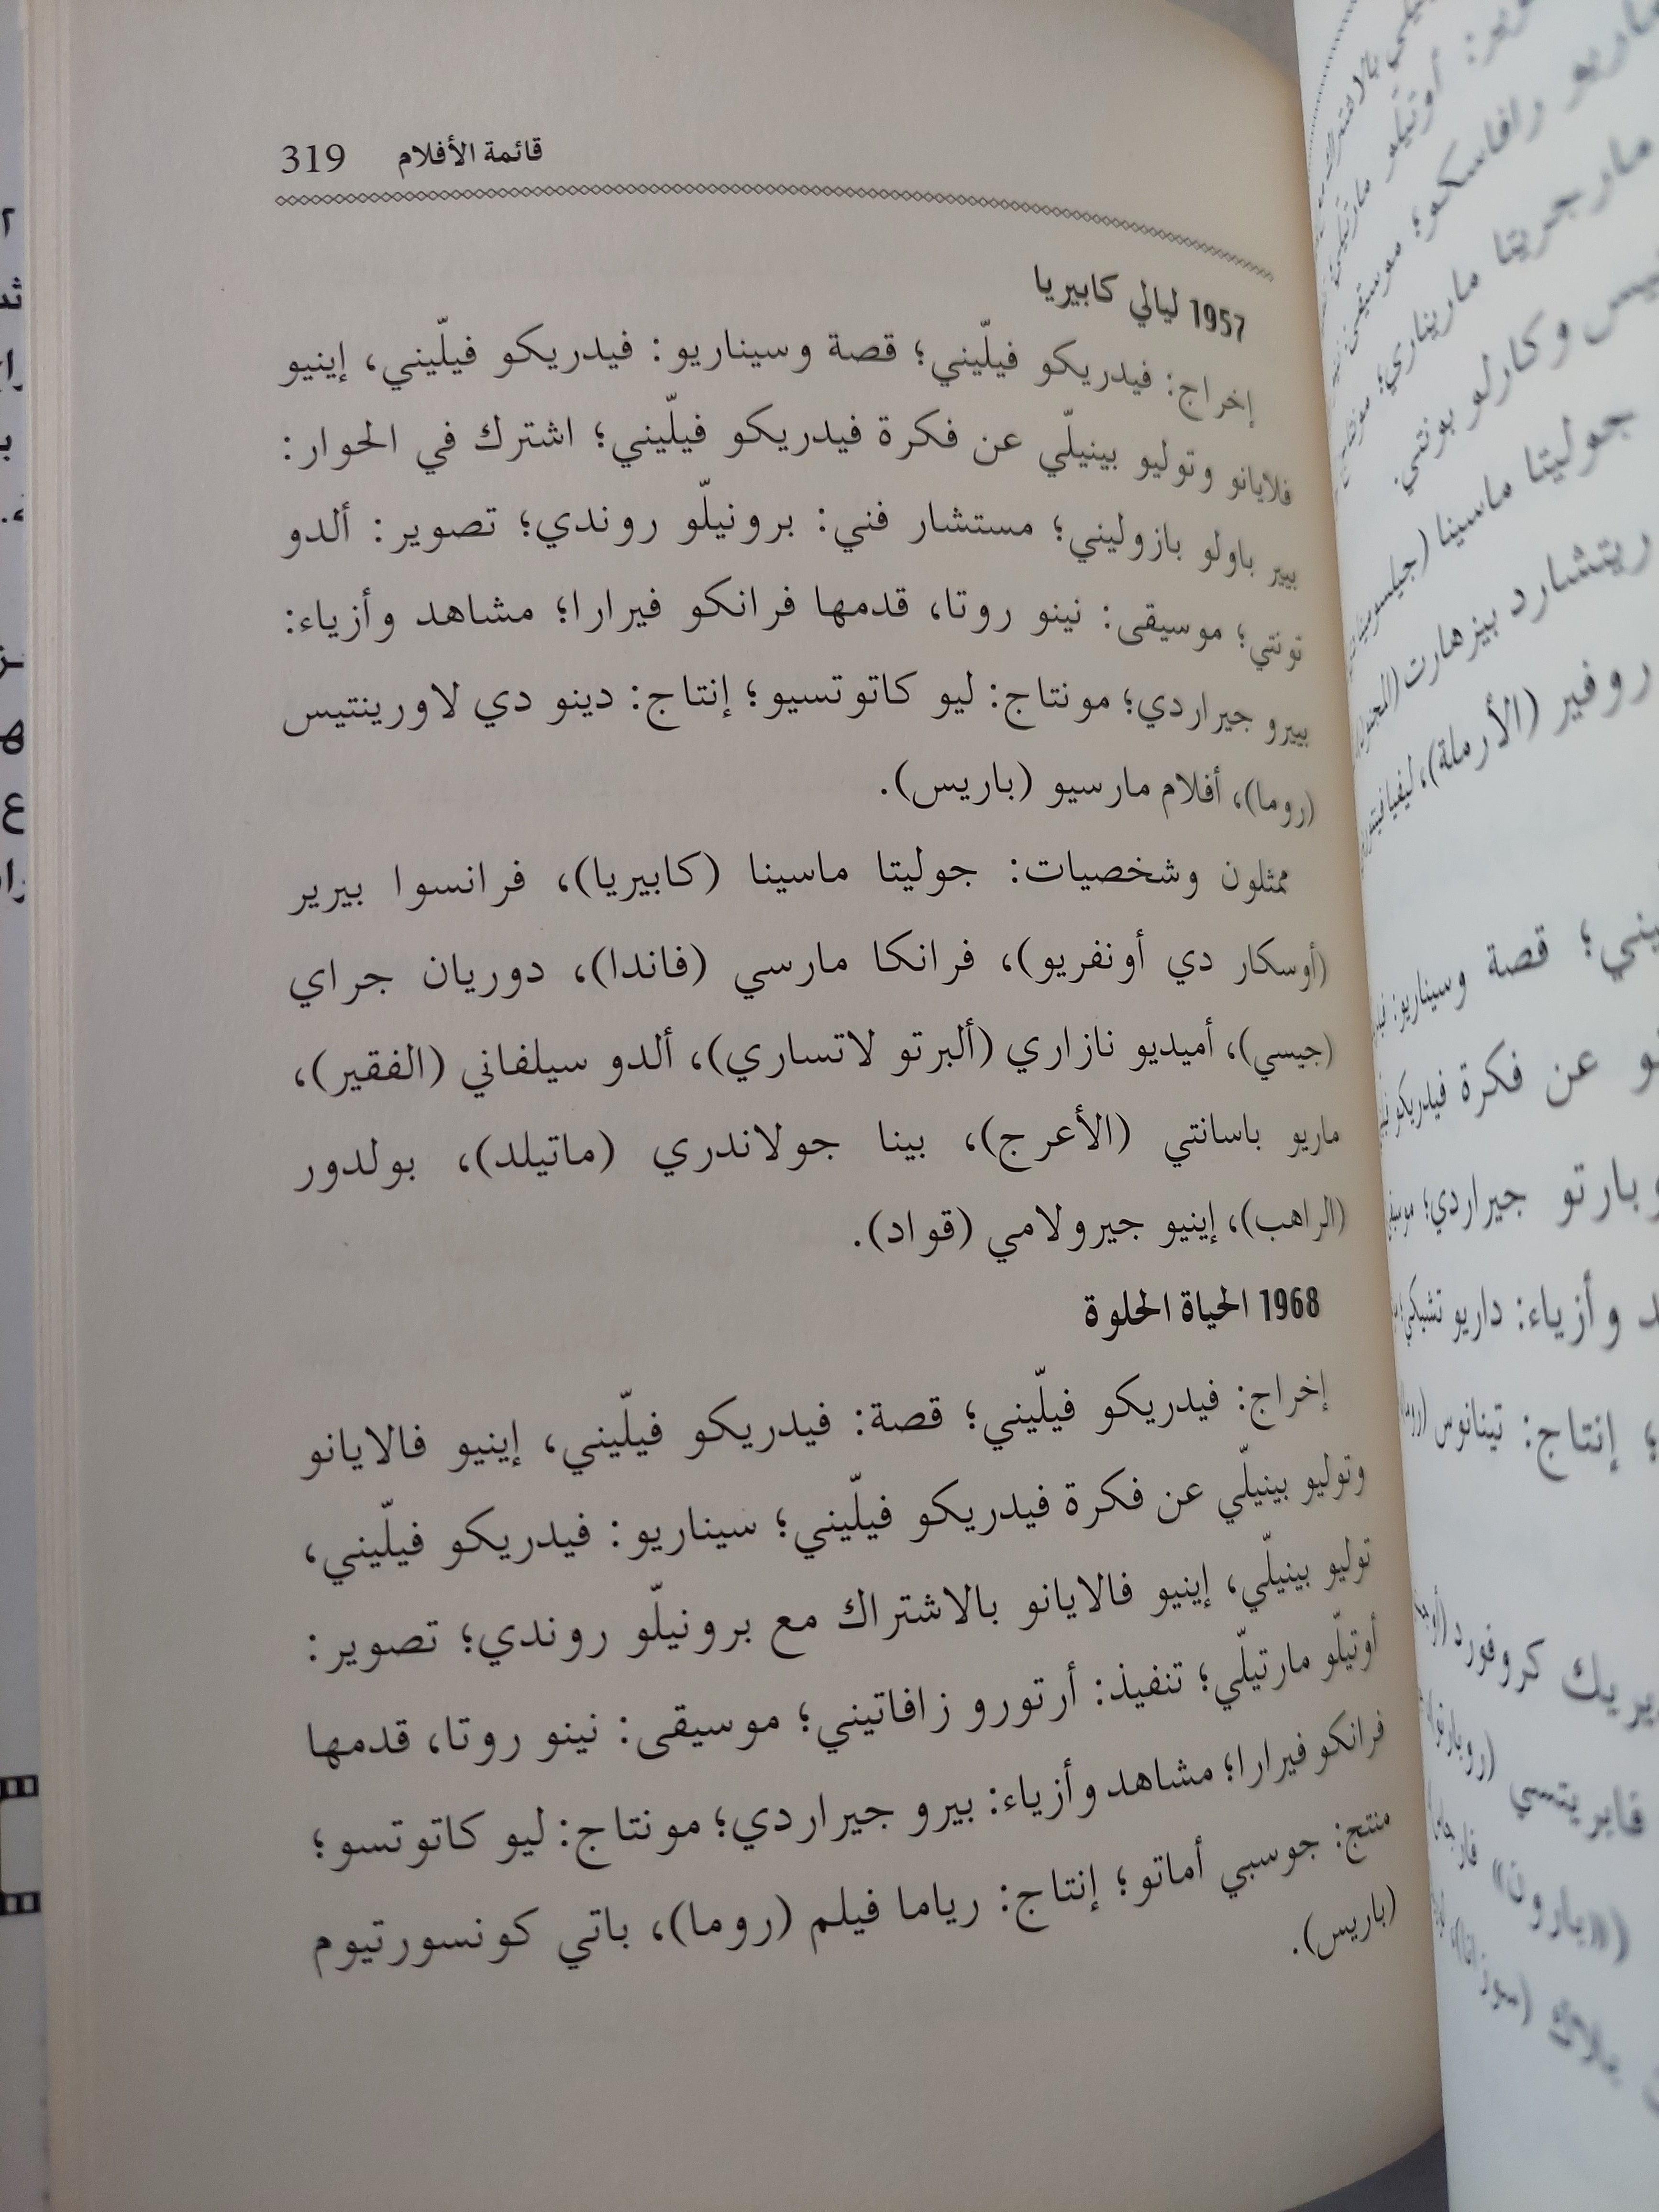 قائمة الأفلام 319
1957 ليالي كابيريا
إخراج: فيدريكو فيلّيني؛ قصة وسيناريو: فيدريكو فيلّيني، إينيو
فلايانو وتوليو بينيلّي عن فكرة فيدريكو فيلّيني؛ اشترك في الحوار:
بيير باولو بازوليني؛ مستشار فني: برونيلّو روندي؛ تصوير: ألدو
تونتي؛ موسيقى: نينو روتا، قدمها فرانكو فيرارا؛ مشاهد وأزياء:
بييرو جيراردي؛ مونتاج: ليو كاتوتسيو؛ إنتاج: دينو دي لاورينتيس
(روما)، أفلام مارسيو (باريس).
ممثلون وشخصيات: جوليتا ماسينا (كابيريا)، فرانسوا بيرير
(أوسكار دي أونفريو)، فرانكا مارسي (فاندا)، دوريان جراي
(جيسي)، أميديو نازاري (ألبرتو لاتساري)، ألدو سيلفاني (الفقير)،
ماريو باسانتي (الأعرج)، بينا جولاندري (ماتيلد)، بولدور
(الراهب)، إينيو جيرولامي (قواد).
1968 الحياة الحلوة
إخراج: فيدريكو فيلّيني؛ قصة: فيدريكو فيلّيني، إينيو فالايانو
وتوليو بينيلّي عن فكرة فيدريكو فيلّيني؛ سيناريو: فيدريكو فيلّيني،
توليو بينيلّي، إينيو فالايانو بالاشتراك مع برونيلّو روندي؛ تصوير:
أوتيلّو مارتيلّي؛ تنفيذ: أرتورو زافاتيني؛ موسيقى: نينو روتا، قدمها
فرانكو فيرارا؛ مشاهد وأزياء: بيرو جيراردي؛ مونتاج: ليو كاتوتسو؛
منتج: جوسبي أماتو؛ إنتاج: رياما فيلم (روما)، باتي كونسورتيوم
(باريس).
مارجريتا ماريناري؛
وكارلو بونتي.
جوليتا ماسينا
ريتشارد بيزهارت
روفير (الأرملة)،
قصة وسيناريو:
عن فكرة فيدريكو
جيراردي؛
وأزياء: داريو
إنتاج: تيتانوس
كروفورد